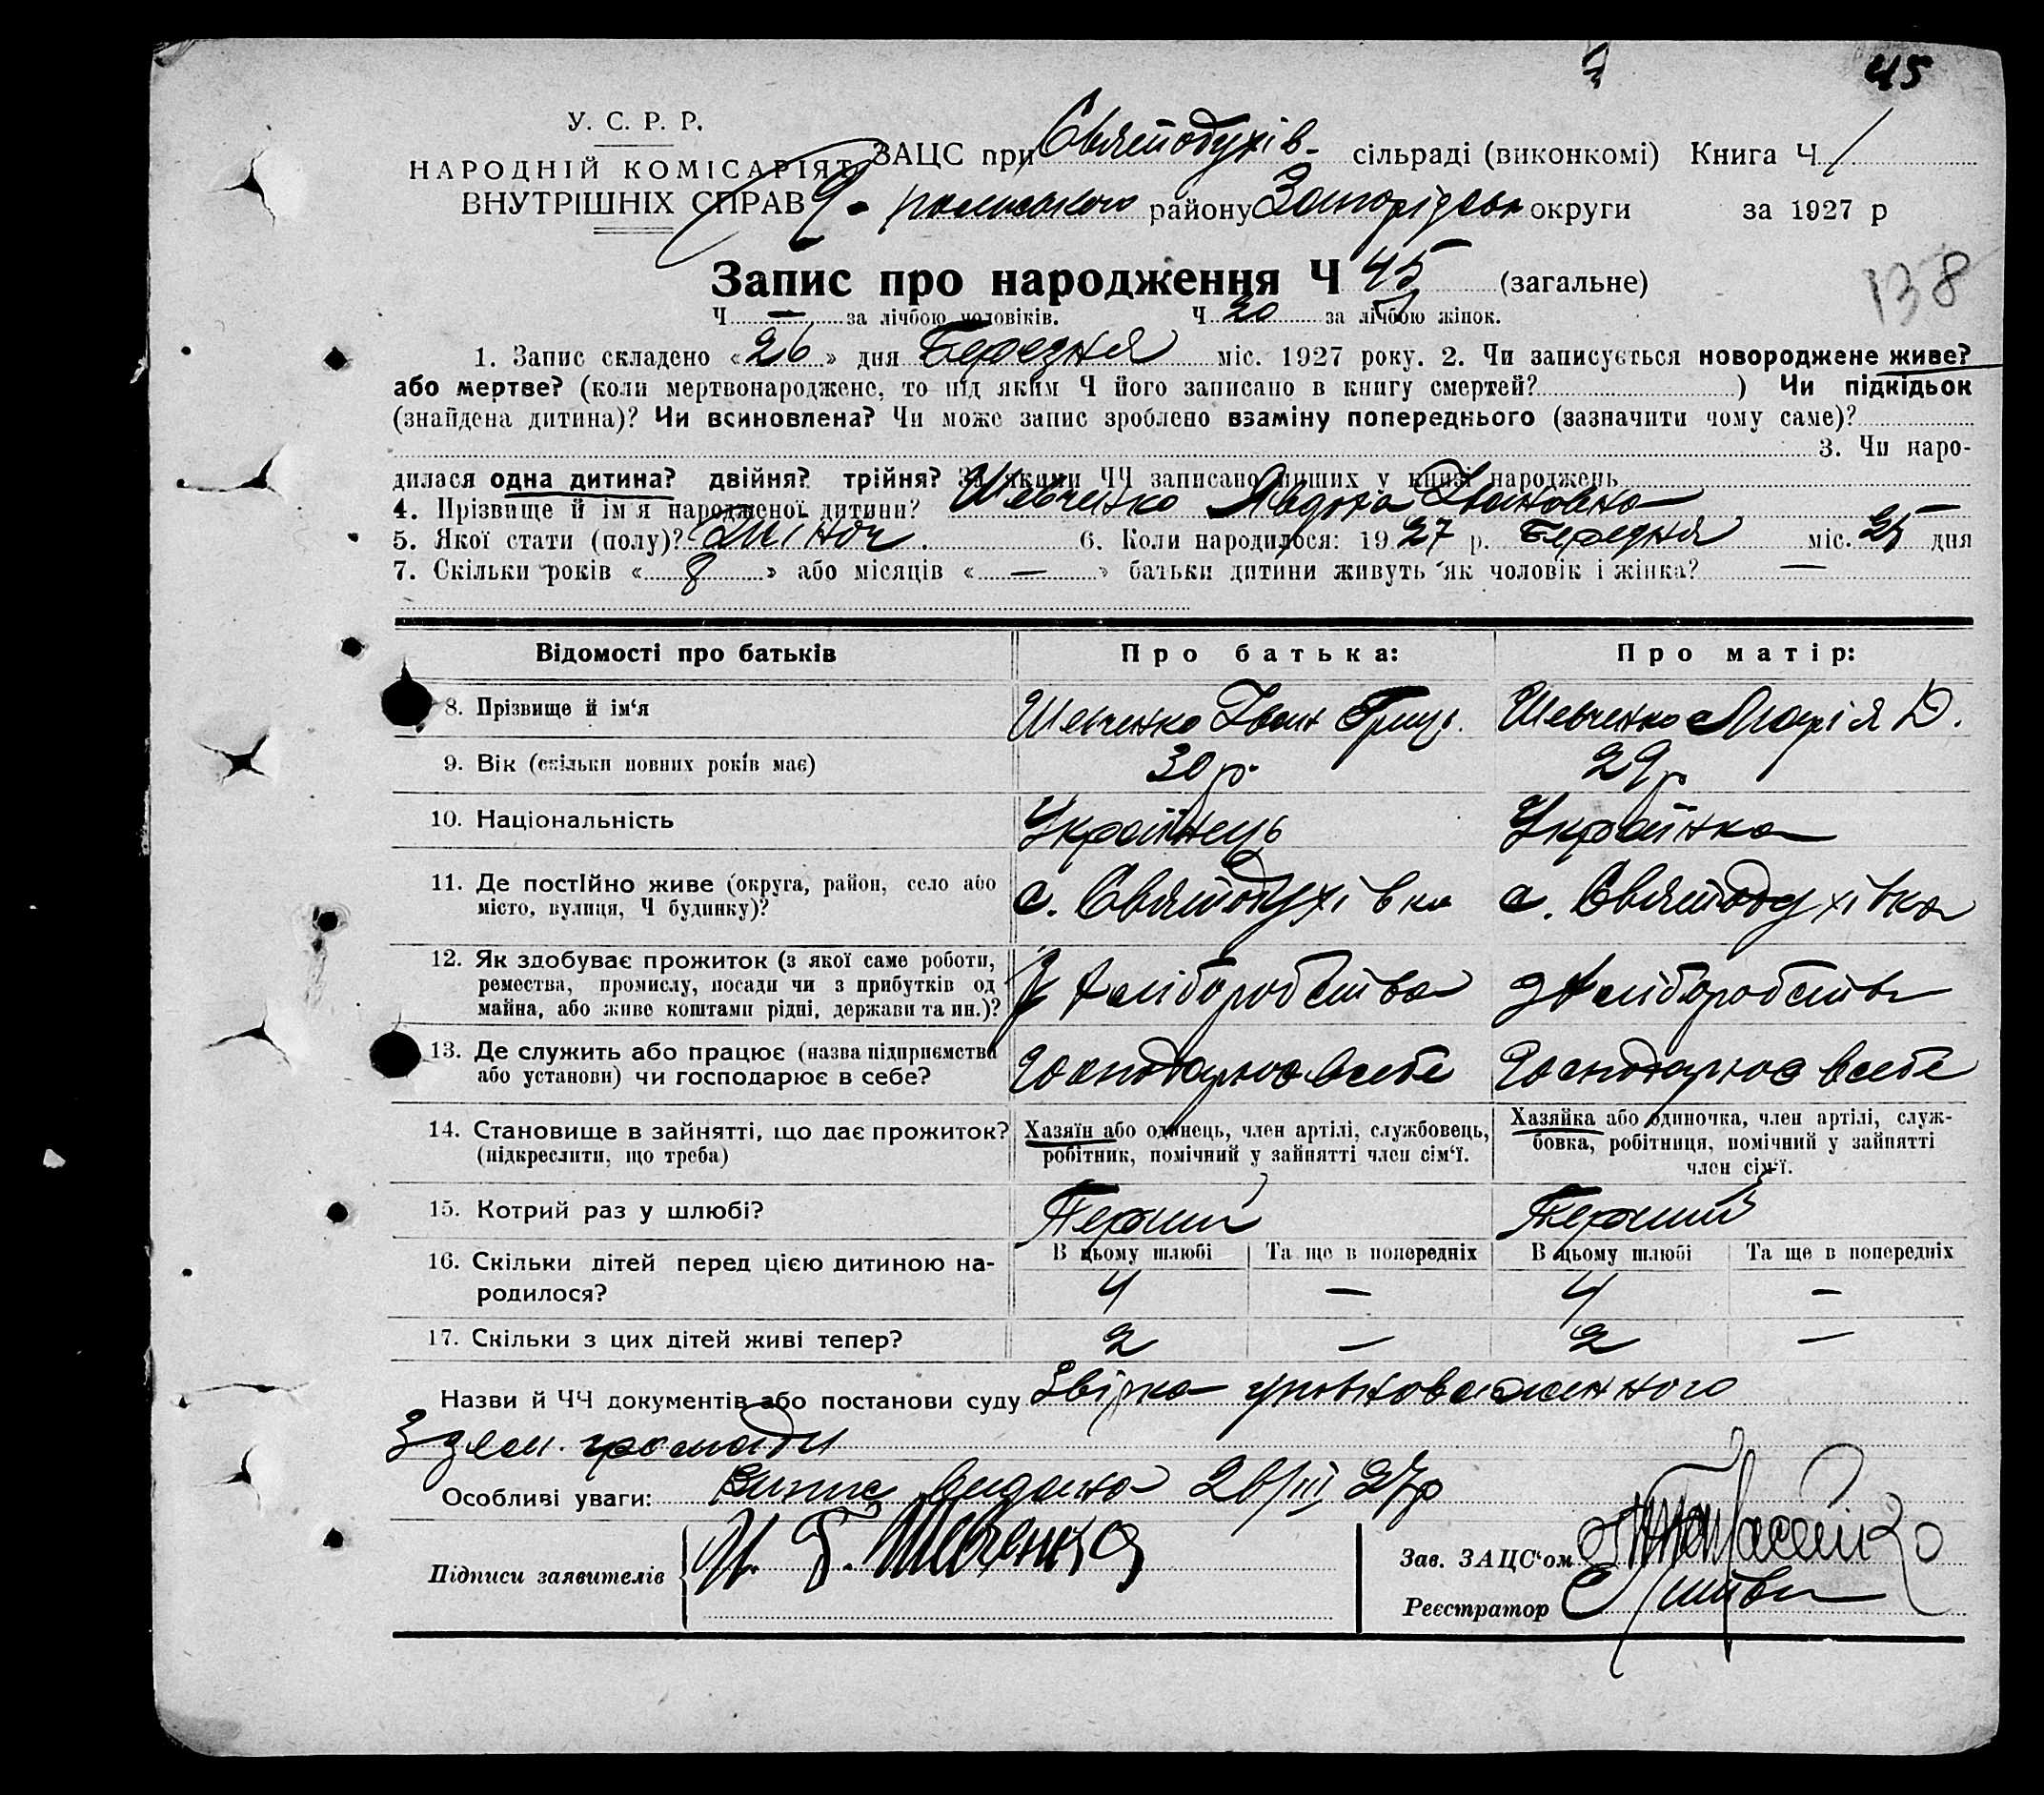 45
У. С. Р. Р.
НАРОДНІЙ КОМІСАРІЯТ
ВНУТРІШНІХ СПРАВ
ЗАЦС при Святодухів- сільраді (виконкомі) Книга Ч 1
району Запорізьк округи за 1927 р
Запис про народження Ч 45 (загальне)
138
Ч — за лічбою чоловіків. Ч 20 за лічбою жінок.
1. Запис складено «26» дня Березня міс. 1927 року. 2. Чи записується новороджене живе?
або мертве? (коли мертвонароджене, то під яким Ч його записано в книгу смертей? ) Чи підкідьок
(знайдена дитина)? Чи всиновлена? Чи може запис зроблено взаміну попереднього (зазначити чому саме)?
3. Чи наро-
дилася одна дитина? двійня? трійня? За якими ЧЧ записано инших у книзі народжень
4. Прізвище й ім'я народженої дитини? Шевченко Явдоха Івановна
5. Якої стати (полу)? Жіноч. 6. Коли народилося: 1927 р. Березня міс. 25 дня
7. Скільки років «8» або місяців «—» батьки дитини живуть як чоловік і жінка? —
Відомості про батьків Про батька: Про матір:
8. Прізвище й ім'я Шевченко Іван Григ. Шевченко Марія Д.
9. Вік (скільки повних років має) 30 р. 29 р
10. Національність Українець Українка
11. Де постійно живе (округа, район, село або
місто, вулиця, Ч будинку)? с. Святодухівка с. Святодухівка
12. Як здобуває прожиток (з якої саме роботи,
ремества, промислу, посади чи з прибутків од
майна, або живе коштами рідні, держави та ин.)? З хліборобства З хліборобств
13. Де служить або працює (назва підприємства
або установи) чи господарює в себе? Господарює всебе Господарює всебе
14. Становище в зайнятті, що дає прожиток?
(підкреслити, що треба)
Хазяїн або одинець, член артілі, службовець,
робітник, помічний у зайнятті член сім'ї.
Хазяйка або одиночка, член артілі, служ-
бовка, робітниця, помічний у зайнятті
член сім'ї.
15. Котрий раз у шлюбі? Перший Перший
16. Скільки дітей перед цією дитиною на-
родилося?
В цьому шлюбі Та ще в попередніх В цьому шлюбі Та ще в попередніх
4 — 4 —
17. Скільки з цих дітей живі тепер? 2 — 2 —
Назви й ЧЧ документів або постанови суду Звірка уповноваженного
З зем. громади
Особливі уваги: Випис видано 26/III 27р
Підписи заявителів И. Г. Шевченко
Зав. ЗАЦС'ом
Реєстратор